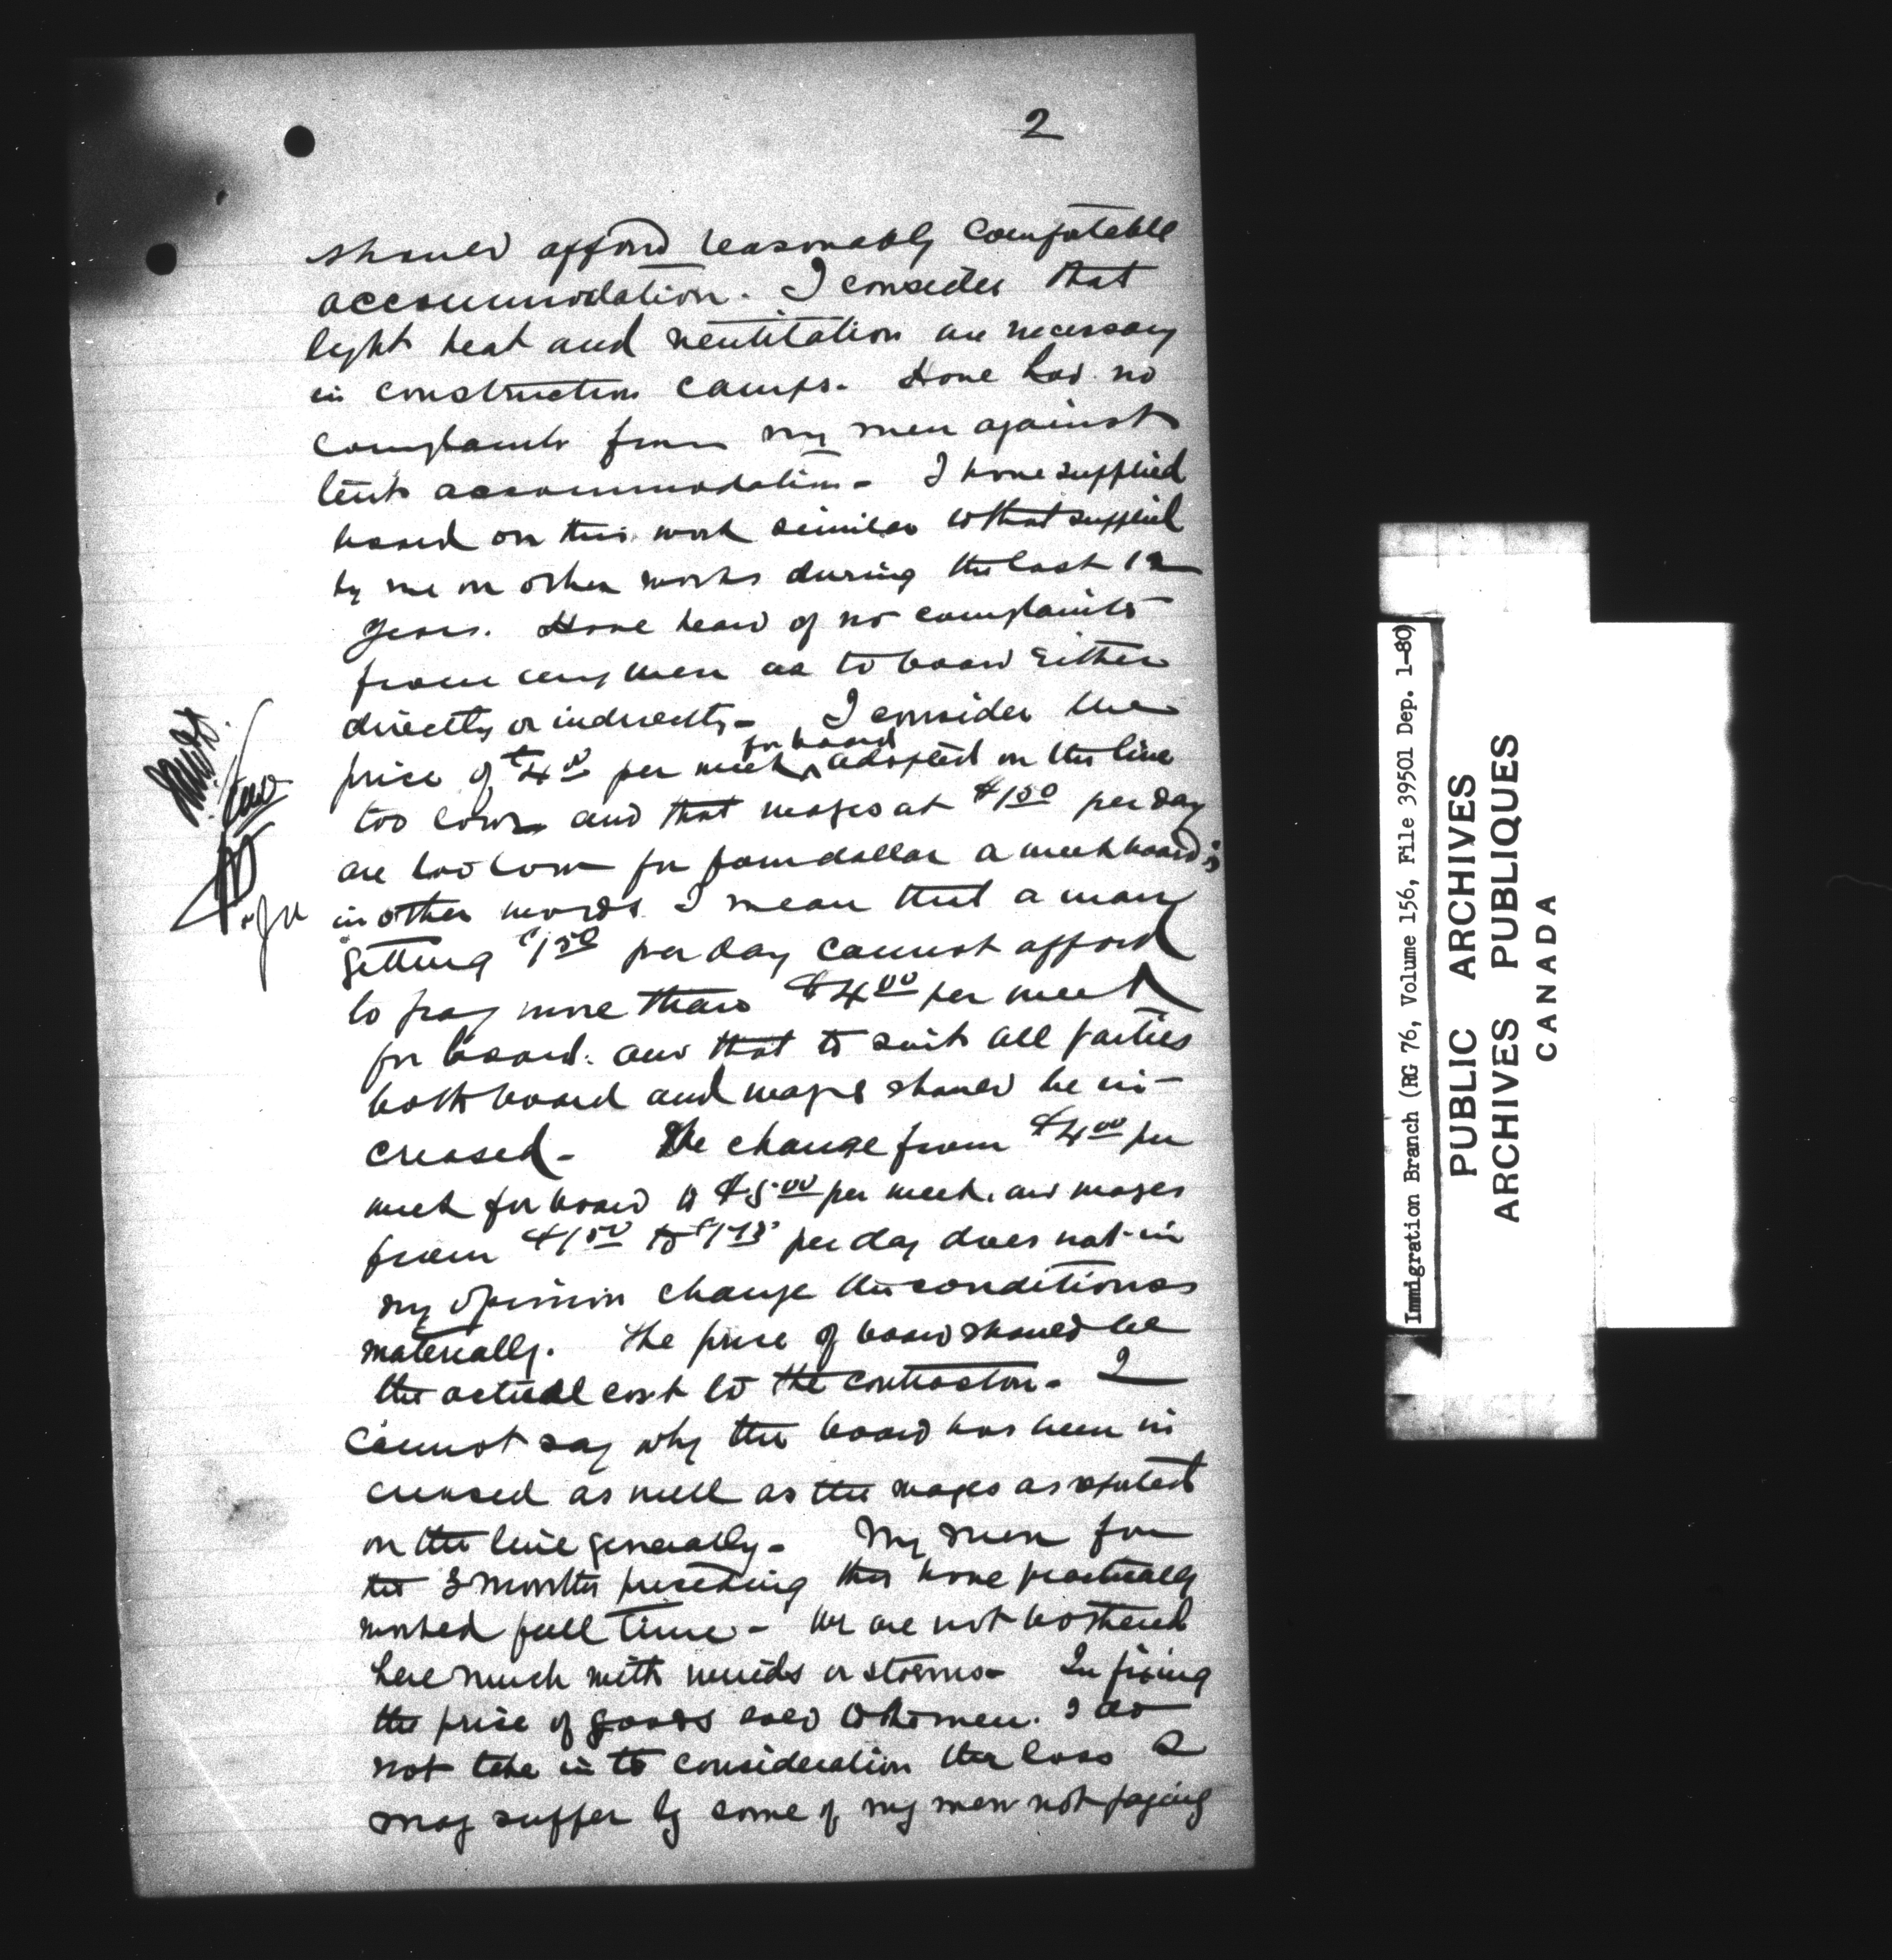 2
should afford reasonably comfortable
accommodation. I consider that
light heat and ventilation are necessary
in construction camps. Have had no
complaints from my men against
tent accommodation - I have supplied
board on this work similar to that supplied
by me on other works during the last 12
years. Have heard of no complaints
from any men as to board either
directly or indirectly - I consider the
for board
price of $4.00 per week adopted on the line
too low and that wages at $1.50 per day
are too low for four dollar a week board;
in other words I mean that a man
getting $1.50 per day cannot afford
to pay more than $4.00 per week
for board. and that to suit all parties
both board and wages should be in-
creased - The change from $4.00 per
week for board to $5.00 per week. and wages
from $1.50 to $1.75 per day does not in
my opinion change the conditions
materially. The price of board should be
the actual cost to the contractor - I
cannot say why the board has been in
creased as well as the wages as
on the line generally - My men for
the 3 months preceding this have practically
worked full time - We are not bothered
here much with winds or storms - In fixing
the price of goods sold to the men. I do
not take in to consideration the loss I
may suffer by some of my men not paying
Immigration Branch (RG 76, Volume 156, File 39501 Dep. 1-80)
PUBLIC ARCHIVES
ARCHIVES PUBLIQUES
CANADA